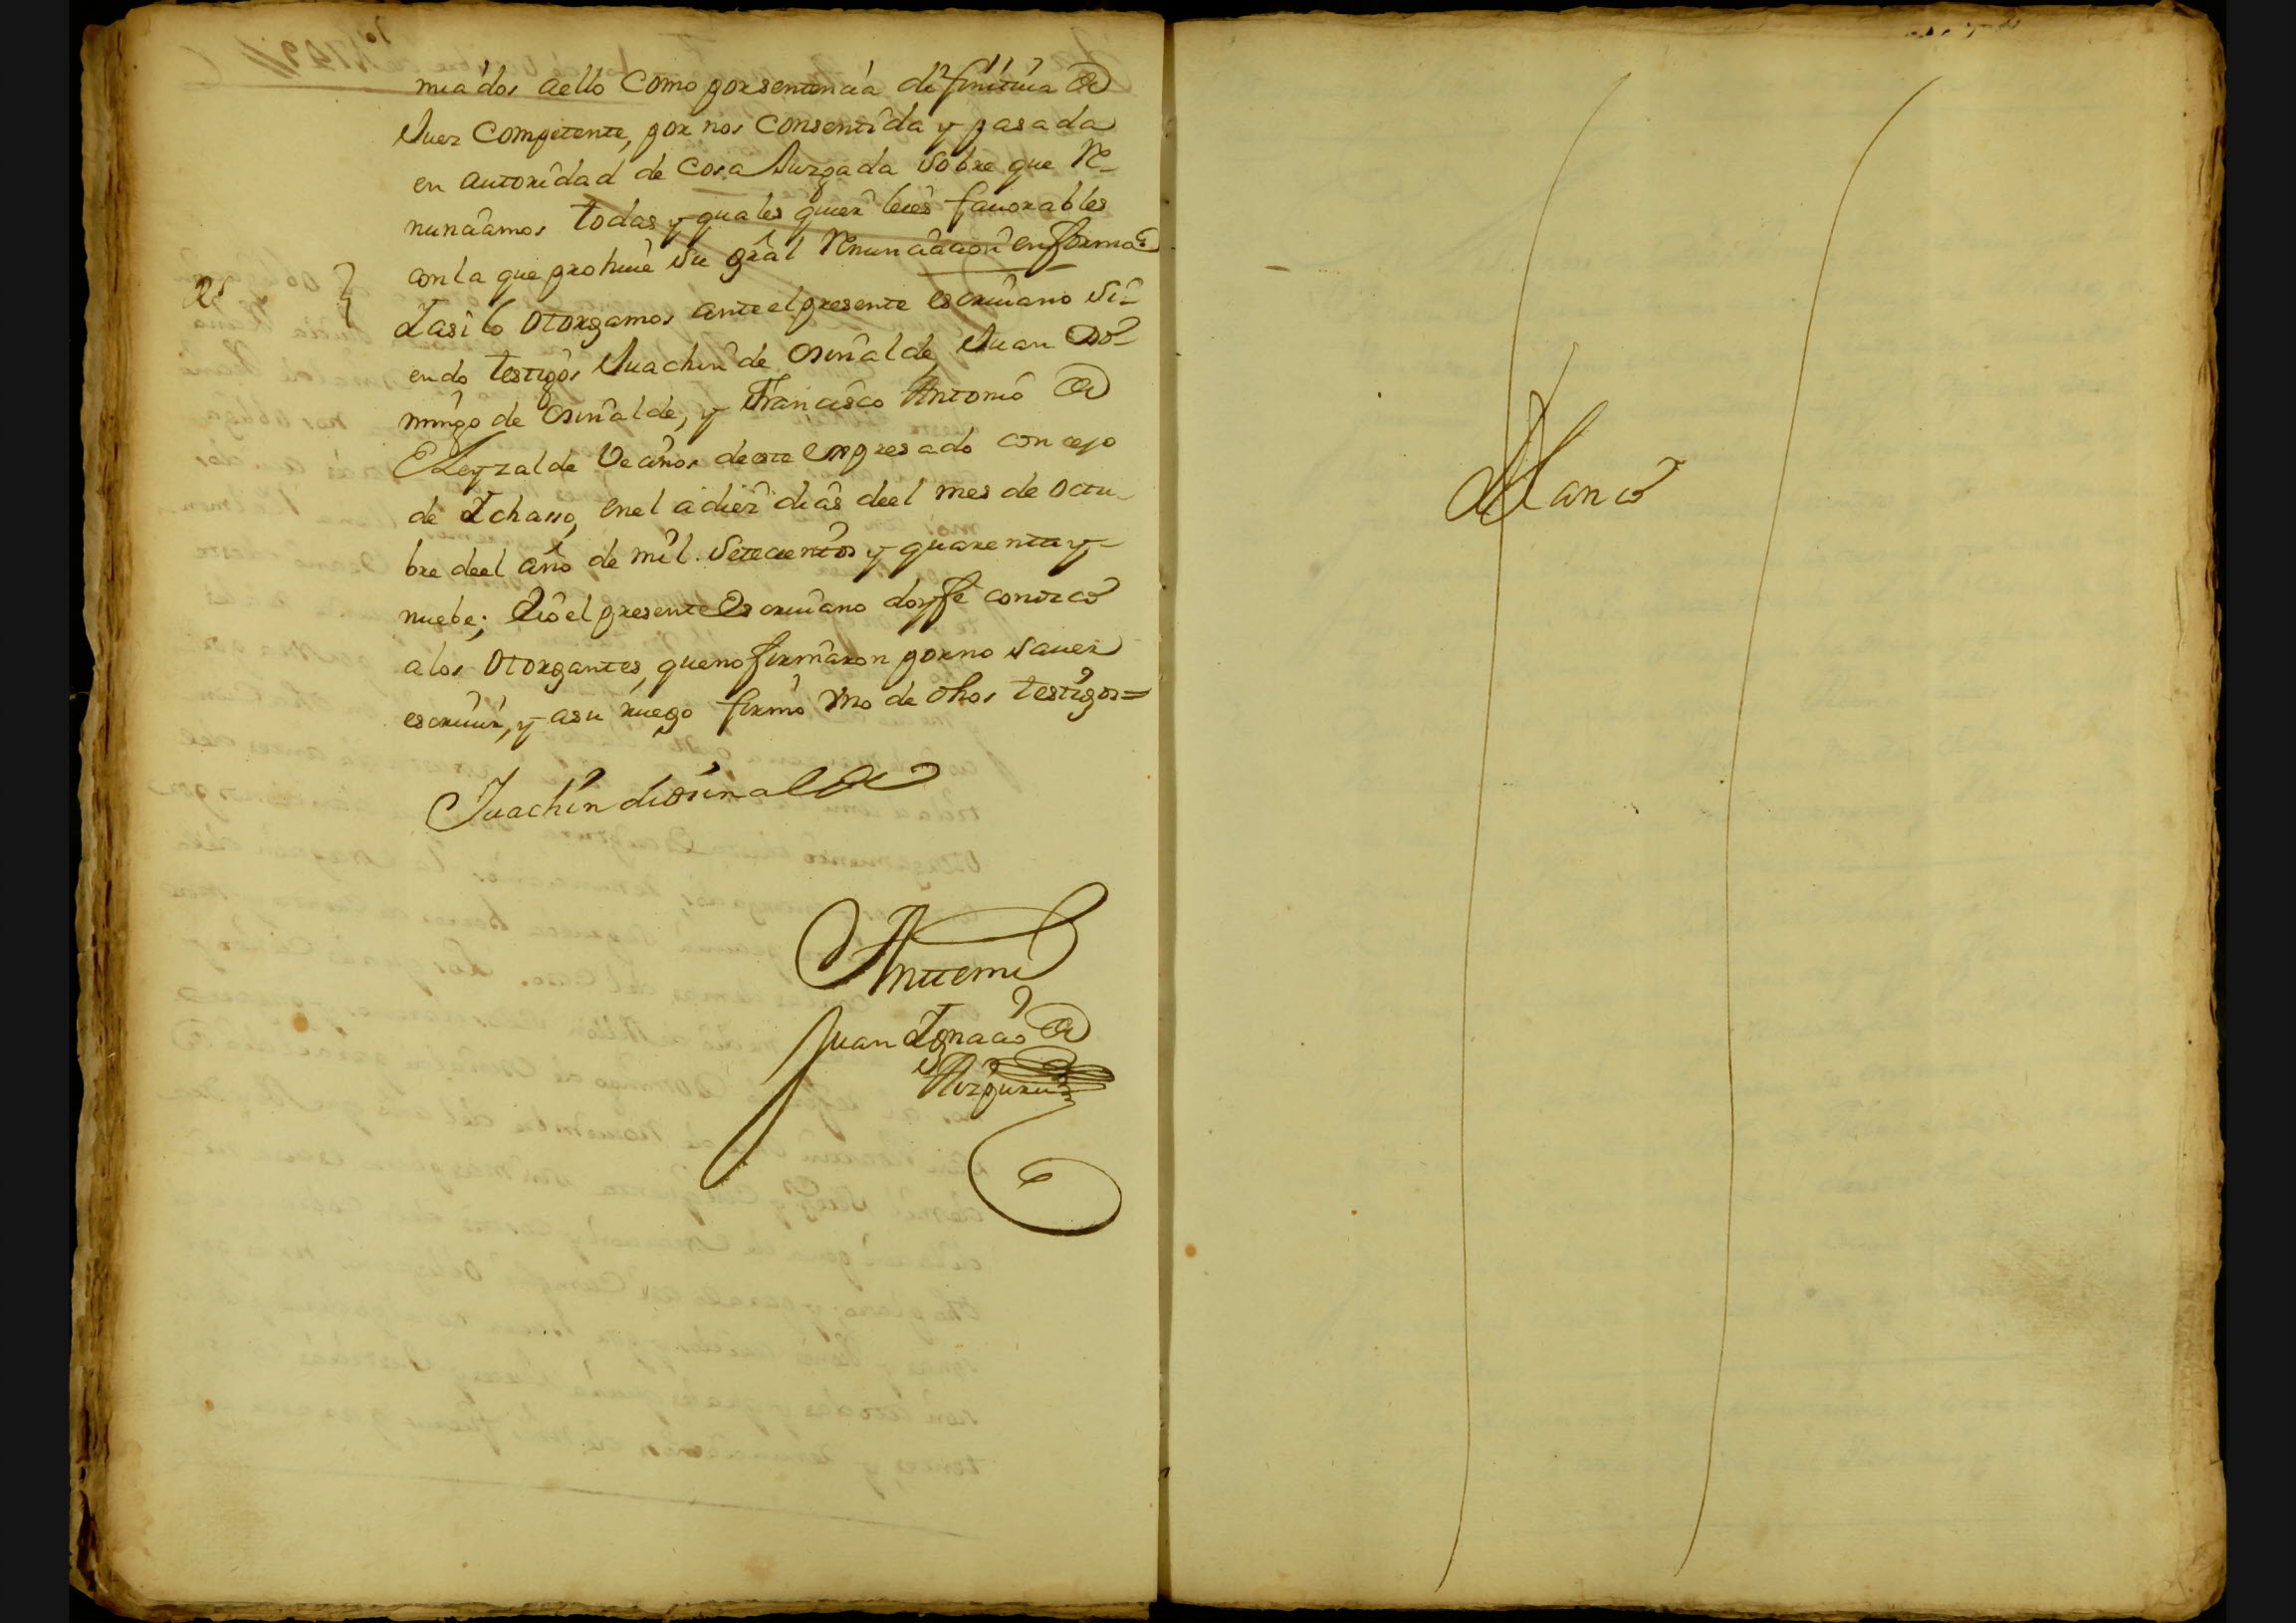 miados aello como por sentencia difinitiua de
Juez Competente, por nos Consentida y pasada
en autoridad de cosa Juzgada sobre que Re-
nunciamos todas y quales quier leies fauorables
con la que prohiue su gral Renunciacion en forma
Y asi lo Otorgamos ante el presente escriuano Si-
endo testigos Juachin de Osinalde, Juan Do-
mingo de Osinalde, y Francisco Antonio de
Eleyzalde Vecinos de este expresado concejo
de Ichasso, en el a diez dias deel mes de Octu-
bre deel año de mil Setecientos y quarenta y
nuebe; Eio el presente Escriuano doy fe conozco
a los Otorgantes, que no firmaron por no sauer
escriuir, y a su ruego firmó Vno de dhos testigos=
Juachin de Osinalde
Antemi
Juan Ignacio de
Aizpuru
Blanco